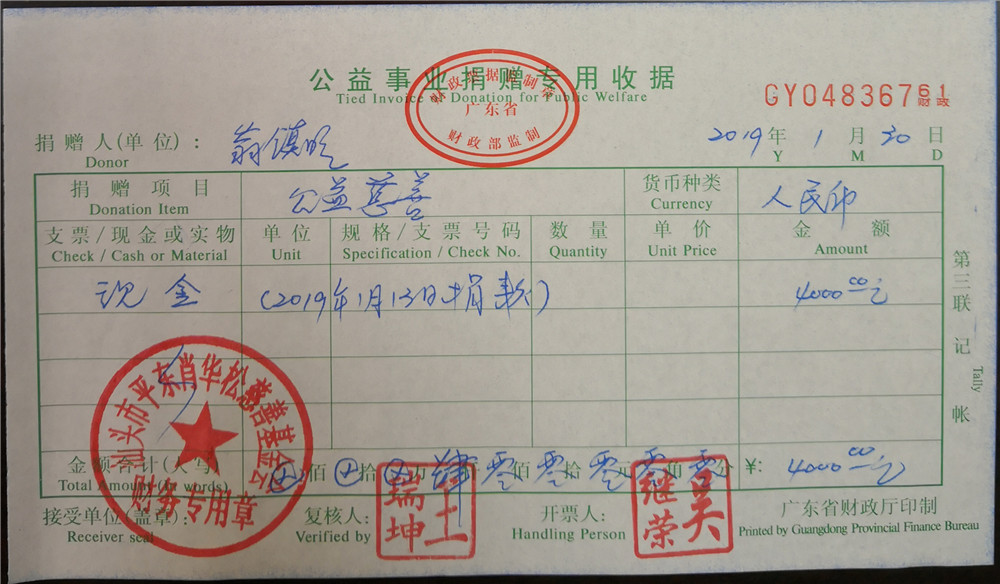 公益事业捐赠专用收据
Tied Invoice of Donation for Public Welfare
财政票据监制章
广东省
财政部监制
GY04836761
财政
捐赠人(单位): 翁镇
Donor
2019年 1月 30日
Y M D
捐赠项目 公益慈善 货币种类 人民币
Donation Item Currency
支票/现金或实物 单位 规格/支票号码 数量 单价 金额
Check / Cash or Material Unit Specification / Check No. Quantity Unit Price Amount
现金 (2019年1月13日捐款) 4000.00元
第三联 记帐
Tally
汕头市平东肖华松慈善基金会
财务专用章
金额合计(大写) 佰 拾 万 肆 仟 零 佰 零 拾 零 元 零 角 零 分 ¥: 4000.00元
Total Amount (In words)
接受单位(盖章): 复核人: 王瑞坤 开票人: 吴继荣 广东省财政厅印制
Receiver seal Verified by Handling Person Printed by Guangdong Provincial Finance Bureau